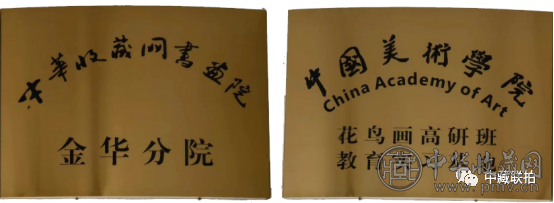 中華收藏网書畫院
金华分院
中國美術學院
China Academy of Art
花鸟画高研班
教育
中华收藏网
中藏联拍